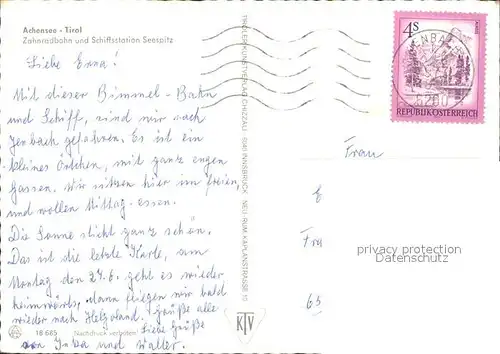 Achensee - Tirol
Zahnradbahn und Schiffsstation Seespitz
Liebe Erna!
Mit dieser Bimmel-Bahn
und Schiff, sind wir nach
Jenbach gefahren. Es ist ein
kleines Örtchen, mit ganz engen
Gassen. Wir sitzen hier im freien,
und wollen Mittag-essen.
Die Sonne sticht ganz schön.
Das ist die letzte Karte, am
Montag den 24.6. geht es wieder
heimwärts, dann fliegen wir bald
wieder nach Helgoland. Grüße alle
Liebe Grüße
von Inka und Walter.
18 665 Nachdruck verboten!
TIROLER KUNSTVERLAG CHIZZALI · 6041 INNSBRUCK · NEU-RUM, KAPLANSTRASSE 10
KTV
4S
REPUBLIK ÖSTERREICH
6200
Frau
E
Fra
63
privacy protection
Datenschutz